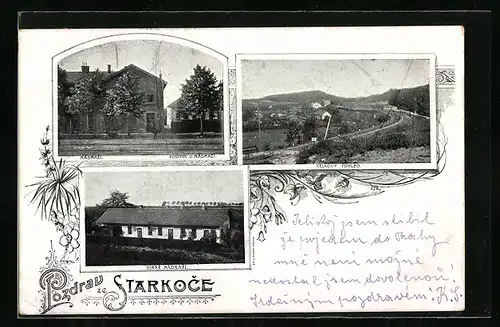 NÁDRAŽÍ.
HOSTINEC U NÁDRAŽÍ.
CELKOVÝ POHLED.
STARÉ NÁDRAŽÍ.
Pozdrav ze STARKOČE
jsem slíbil
že přijedem do Prahy
mně není možné
nedostal jsem dovolenou!
Srdečným pozdravem! K. S.